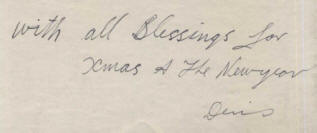 with all Blessings for
Xmas & The Newyear
Denis